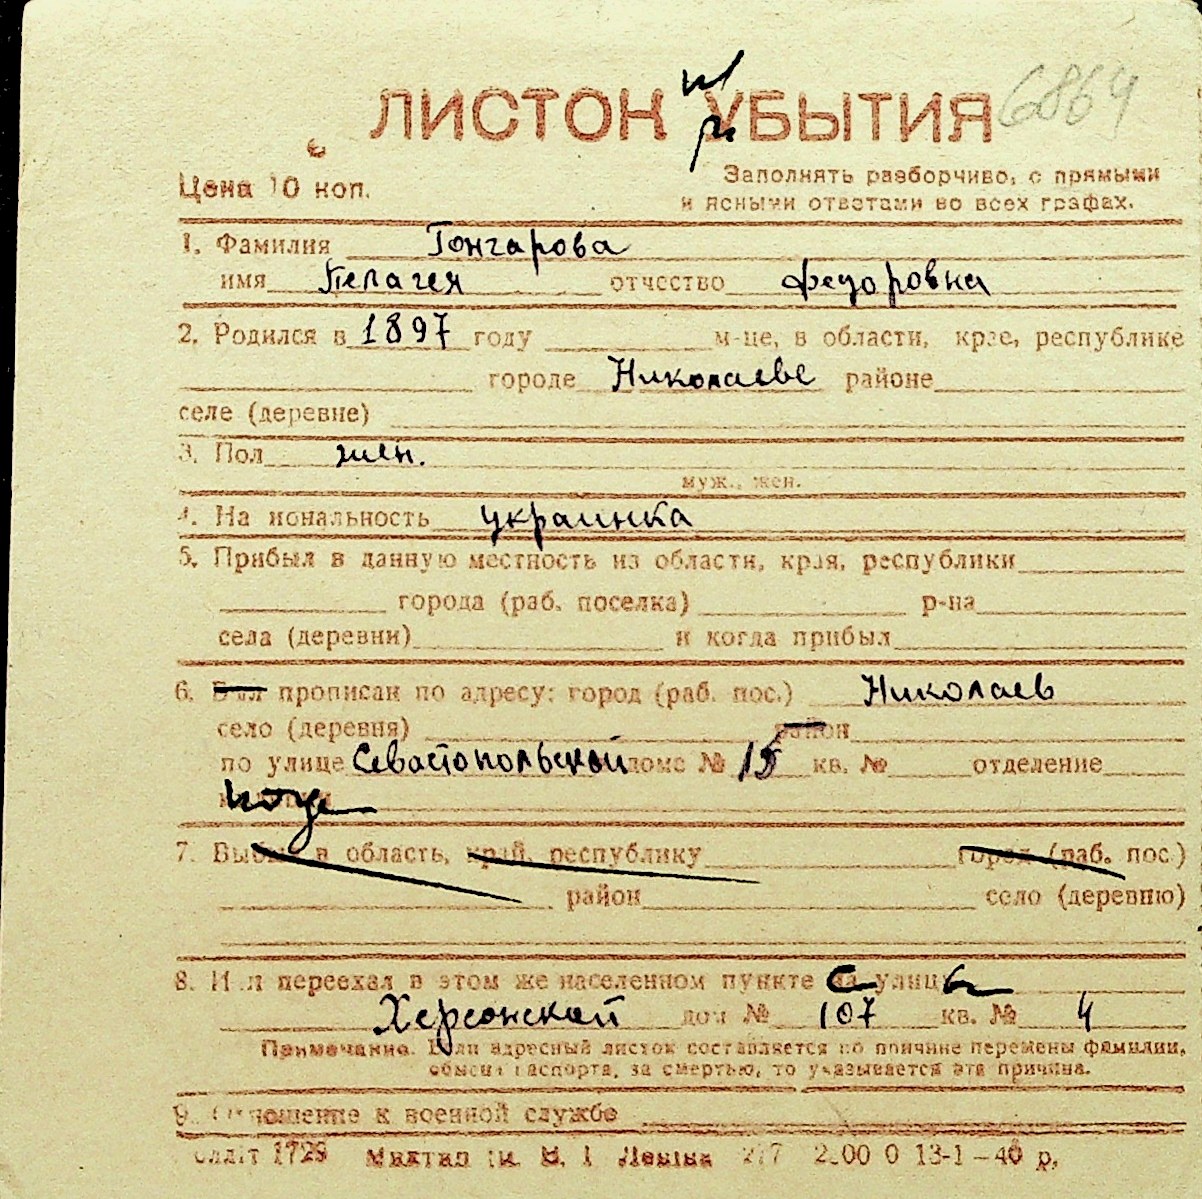 ЛИСТОК УБЫТИЯ
6864
Цена 10 коп.
Заполнять разборчиво, с прямыми
и ясными ответами во всех графах.
1. Фамилия Гончарова
имя Пелагея отчество Федоровна
2. Родился в 1897 году м-це, в области, крае, республике
городе Николаеве районе
селе (деревне)
3. Пол жен.
муж., жен.
4. Национальность украинка
5. Прибыл в данную местность из области, края, республики
города (раб. поселка) р-на
села (деревни) и когда прибыл
6. Был прописан по адресу: город (раб. пос.) Николаев
село (деревня) район
по улице Севастопольской доме № 15 кв. № отделение
7. Выбыл в область, край, республику город (раб. пос.)
район село (деревню)
8. Или переехал в этом же населенном пункте с улицы
Херсонской дом № 107 кв. № 4
Примечание. Если адресный листок составляется по причине перемены фамилии,
обмена паспорта, за смертью, то указывается эта причина.
9. Отношение к военной службе
1729 им. В. І. Леніна 13-1-40 р.